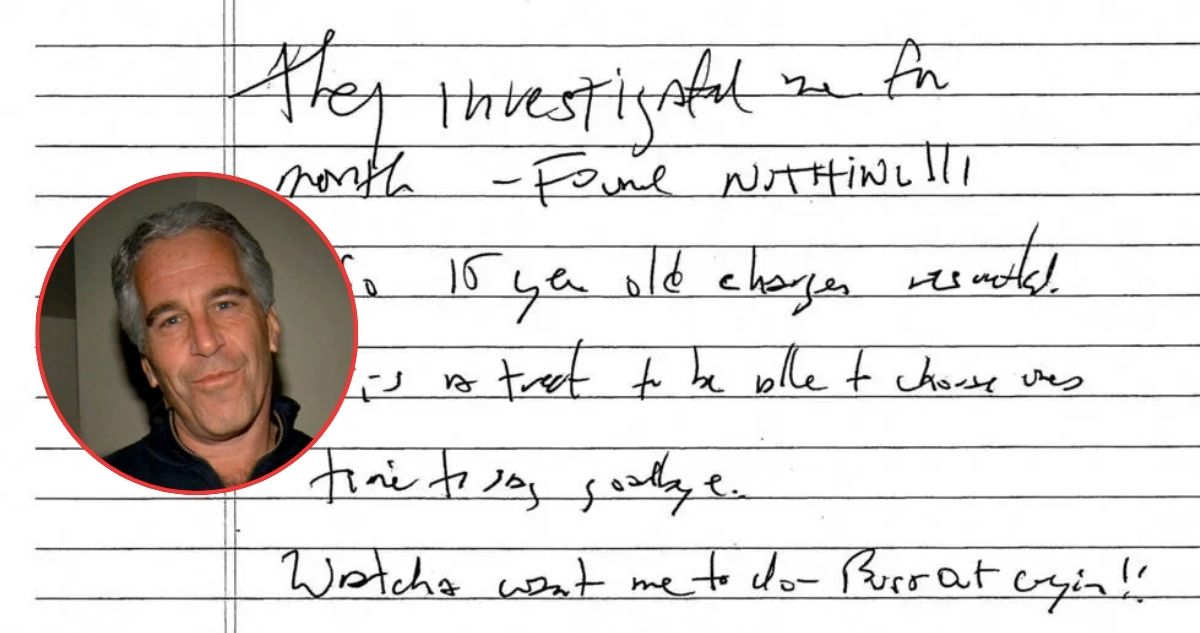 They investigated me for
month - Found NOTHING!!!
So 15 year old charges resulted.
is a treat to be able to choose ones
time to say goodbye.
Watcha want me to do - Burst out cryin!!